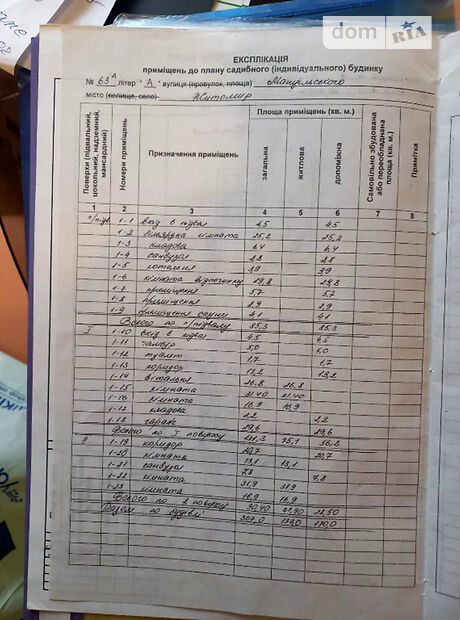 dom RIA
ЕКСПЛІКАЦІЯ
приміщень до плану садибного (індивідуального) будинку
№ 63А літер "А" вулиця (провулок, площа)
місто (селище, село) Житомир
Поверхи (підвальний, цокольний, надземний, мансардний) Номери приміщень Призначення приміщень Площа приміщень (кв. м.) загальна житлова допоміжна Самовільно збудована або переобладнана площа (кв. м.) Примітка
1 2 3 4 5 6 7 8
п/підв 1-1 вхід в підвал 4,5 4,5
1-2 більярдна кімната 25,2 25,2
1-3 кладова 6,4 6,4
1-4 санвузол 4,8 4,8
1-5 котельня 3,9 3,9
1-6 кімната відпочинку 29,8 29,8
1-7 приміщення 5,7 5,7
1-8 приміщення
1-9 приміщення сауни 4,1 4,1
Всього по п/підвалу 85,3 85,3
I 1-10 вхід в підвал 4,5 4,5
1-11 тамбур 5,0 5,0
1-12 туалет 1,7 1,7
1-13 коридор 13,2 13,2
1-14 вітальня 26,8 26,8
1-15 кімната 31,40 31,40
1-16 кімната 16,9 16,9
1-17 кладова 2,2 2,2
1-18 гараж 29,6 29,6
Всього по I поверху 131,3 75,1 56,2
II 1-19 коридор 20,7 20,7
1-20 кімната 13,1 13,1
1-21 санвузол 7,8 7,8
1-22 кімната 31,9 31,9
1-23 кімната 16,9 16,9
Всього по 2 поверху 90,40 61,90 28,50
Разом по будівлі 307,0 137,0 170,0